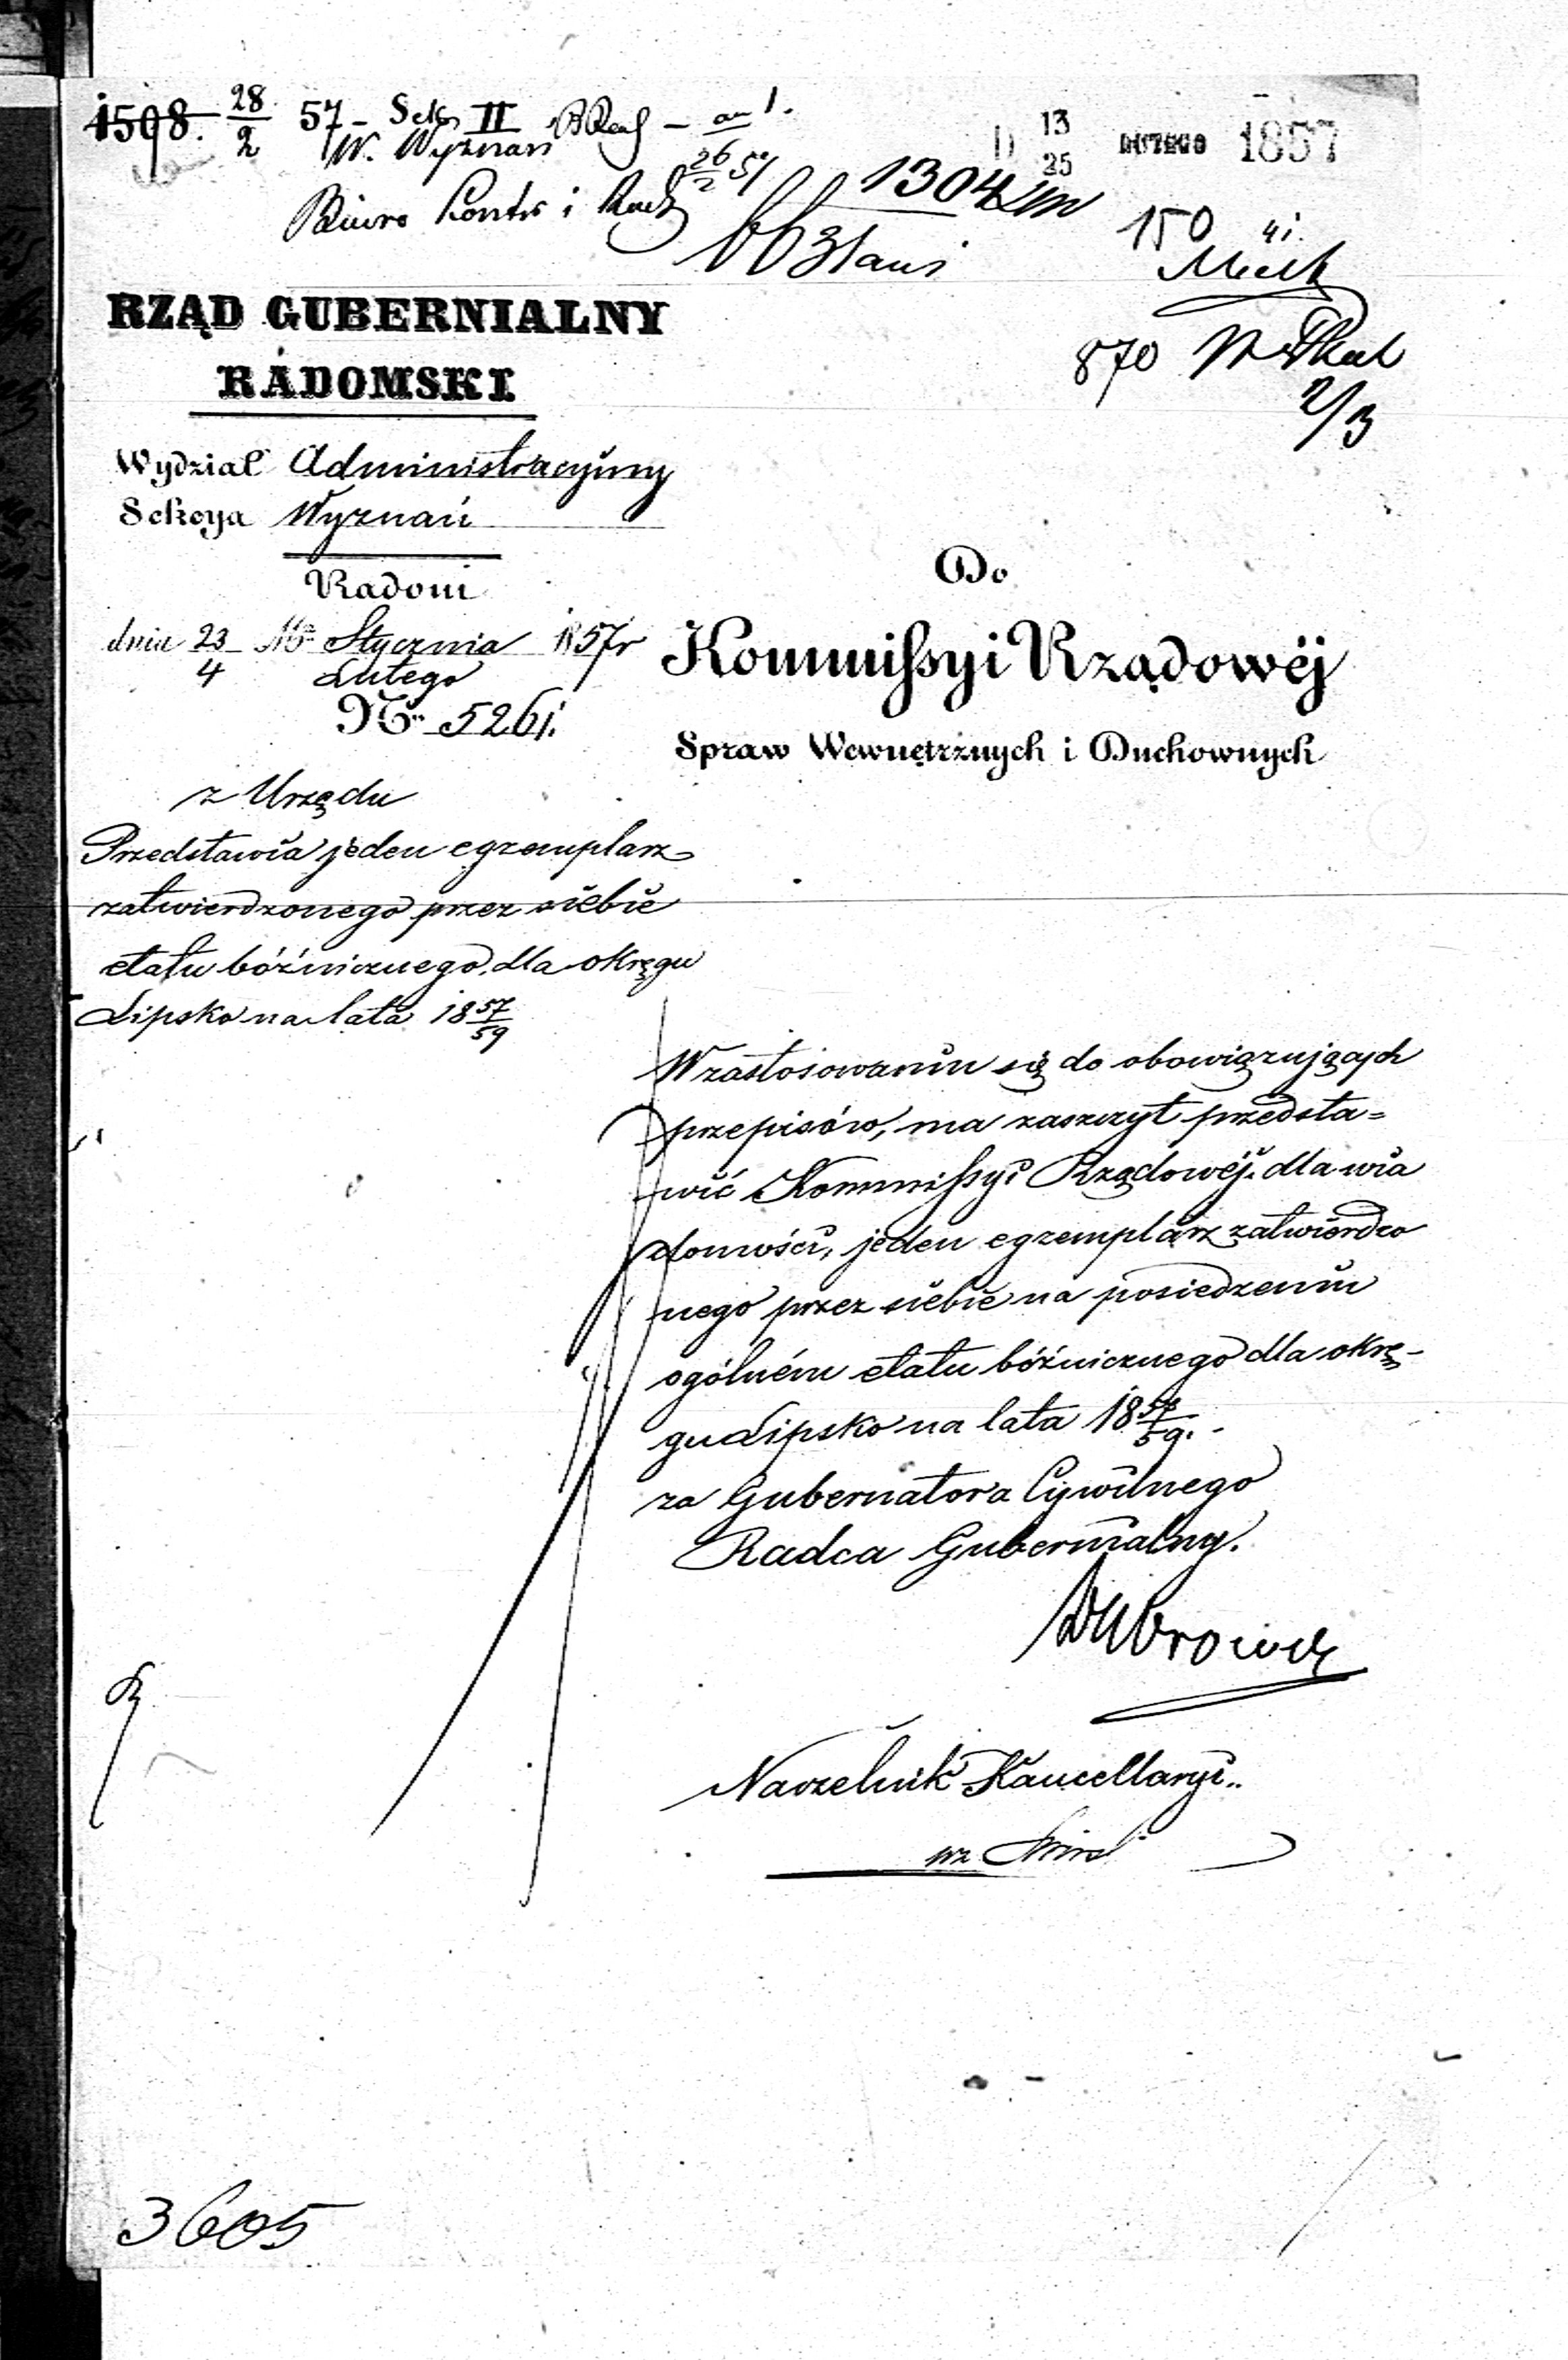 1598. 28/2 57 - Sek. II
W. Wyznań
26/2 57
Biuro Kontr i Rach
13/25 LUTEGO 1857
1304
150
870
2/3
RZĄD GUBERNIALNY
RADOMSKI
Wydział Administracyjny
Sekcya Wyznań
Radom
dnia 23 Mca Stycznia 1857r
4 Lutego
Nr 5261.
Do
Kommissyi Rządowéj
Spraw Wewnętrznych i Duchownych
z Urzędu
Przedstawia jeden egzemplarz
zatwierdzonego przez siebie
etatu bóźniczego dla okręgu
Lipsko na lata 1857/59
W zastosowaniu się do obowiązujących
przepisów, ma zaszczyt przedsta=
wić Kommissyi Rządowéj dla wia
domości, jeden egzemplarz zatwierdzo
nego przez siebie na posiedzeniu
ogólném etatu bóźniczego dla okrę-
gu Lipsko na lata 1857/59.
za Gubernatora Cywilnego
Radca Gubernialny.
Naczelnik Kancellaryi
wz
3605